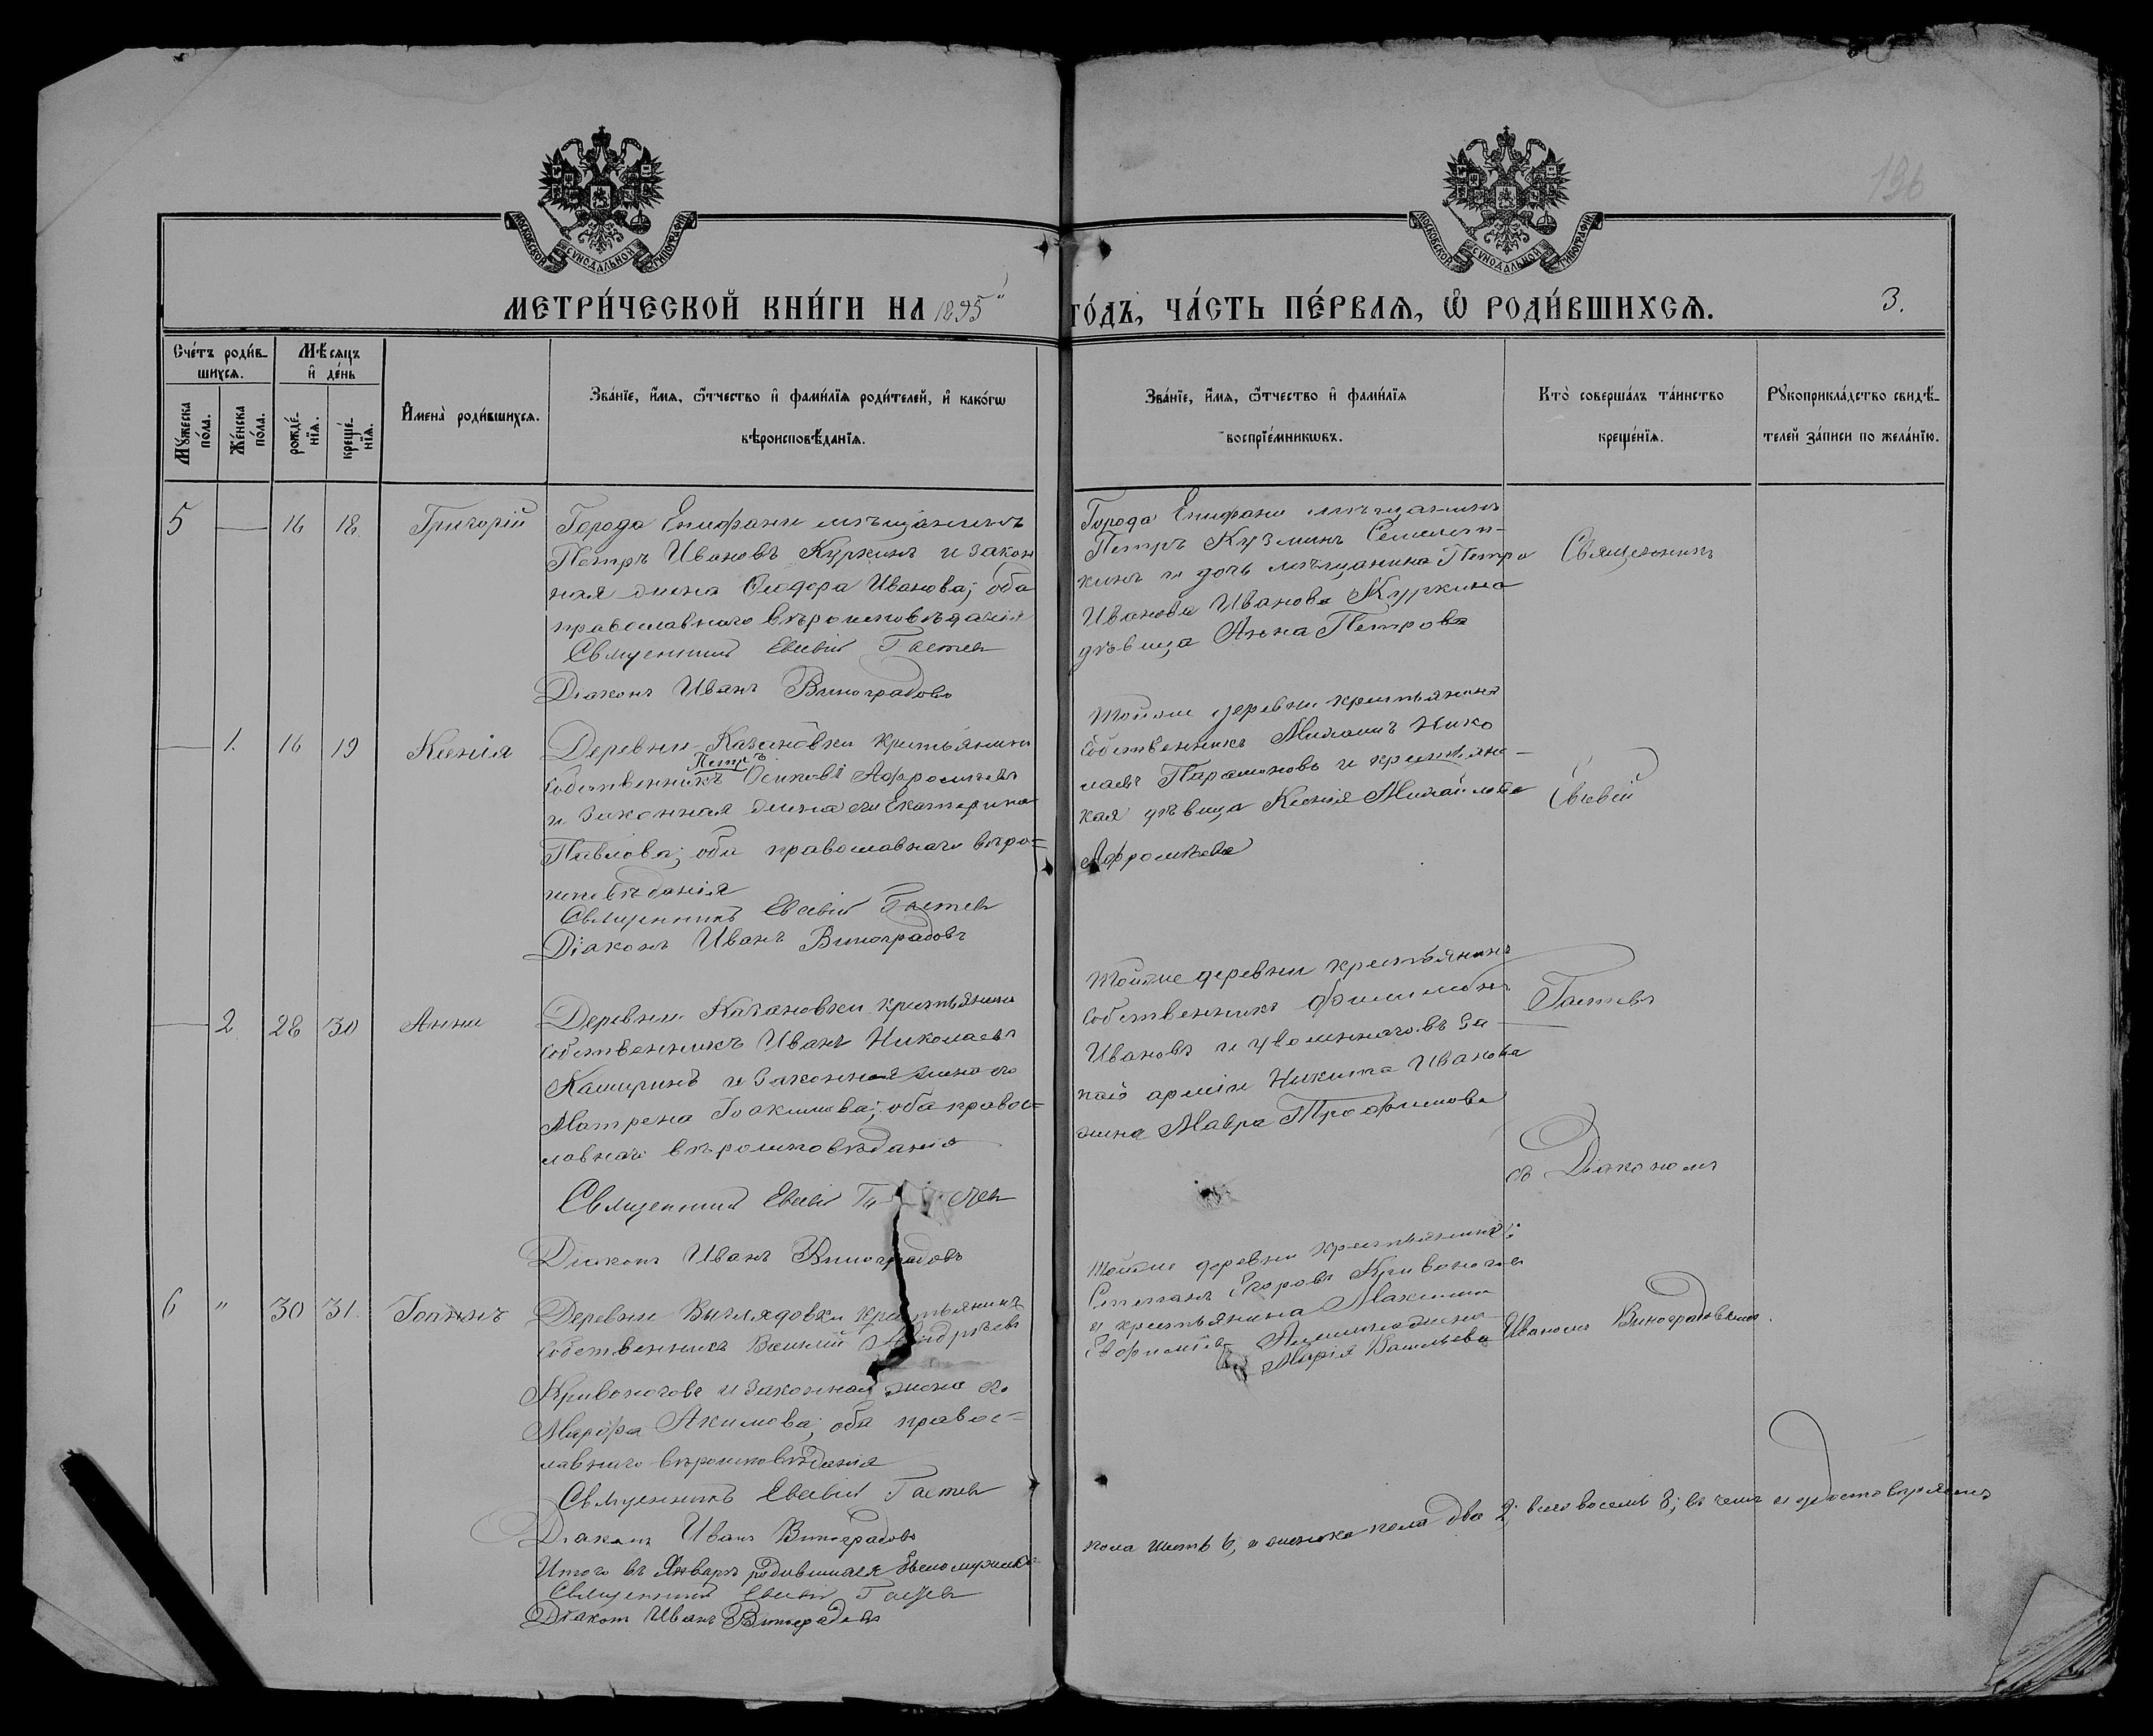 196
МОСКОВСКОЙ СУНОДАЛЬНОЙ ТИПОГРАФІИ
МОСКОВСКОЙ СУНОДАЛЬНОЙ ТИПОГРАФІИ
МЕТРИ́ЧЕСКОЙ КНИ́ГИ НА 1895 ГО́ДЪ, ЧА́СТЬ ПЕ́РВАѦ, Ѡ РОДИ́ВШИХСѦ. 3.
Сче́тъ роди́в-
шихсѧ.
Мѣ́сѧцъ
и́ де́нь
Мꙋжеска
по́ла.
Же́нска
по́ла.
рожде́-
нїѧ.
креще́-
нїѧ.
И́мена̀ роди́вшихсѧ.
Зва́нїе, и́мѧ, ѿтчество и́ фами́лїѧ роди́телей, и́ како́гѡ
вѣроисповѣ́данїѧ.
Зва́нїе, и́мѧ, ѿтчество и́ фами́лїѧ
воспрїе́мникѡвъ.
Кто̀ соверша́лъ та́инство
креще́нїѧ.
Рꙋкоприкла́дство свидѣ́-
телей за́писи по жела́нїю.
5 — 16 18 Григорій
Города Епифани мѣщанинъ
Петръ Ивановъ Куркинъ и закон
ная жена Ѳеодора Иванова; оба
православнаго вѣроисповѣданія
Священникъ Евсевій Гастев
Діаконъ Иванъ Виноградовъ
Города Епифани мѣщанинъ
Петръ Кузминъ
кинъ и дочь мѣщанина Петра
Иванова Иванова Куркина
дѣвица Анна Петрова
— 1. 16 19 Ксенія
Деревни Казановки крестьянинъ
Петръ
собственникъ Осиповъ
и законная жена его Екатерина
Павлова; оба православнаго вѣро=
исповѣданія
Священникъ Евсевій Гастев
Діаконъ Иванъ Виноградовъ
Тойже деревни крестьянинъ
собственникъ Михаилъ Нико
лаевъ Парамоновъ и крестьянс-
кая дѣвица Ксенія Михайлова
— 2 28 30 Анна
Деревни Казановки крестьянинъ
собственникъ Иванъ Николаевъ
Каширинъ и законная жена его
Матрена Іоакимова; оба правос=
лавнаго вѣроисповѣданія
Священникъ Евсевій Гастев
Діаконъ Иванъ Виноградовъ
Тойже деревни крестьянинъ
собственникъ Филимонъ
Ивановъ и уволеннаго въ за-
пасъ арміи Никита Иванова
жена Мавра Трофимова
6 " 30 31 Іоаннъ
Деревни Выглядовки крестьянинъ
собственникъ Василій Андреевъ
Кривоноговъ и законная жена его
Марѳа Акимова; оба правос=
лавнаго вѣроисповѣданія
Священникъ Евсевій Гастев
Діаконъ Иванъ Виноградовъ
Тойже деревни крестьянинъ
Степанъ Егоровъ Кривоногов
и крестьянина Максима
жена
Марія Васильева
Священникъ
Евсевій
Гастевъ
съ Діакономъ
Иваномъ Виноградовымъ.
Итого въ Январѣ родившихся было мужеска
пола шесть 6, и женска пола два 2; всего восемь 8; въ чемъ и удостовѣряемъ
Священникъ Евсевій Гастев
Діаконъ Иванъ Виноградовъ